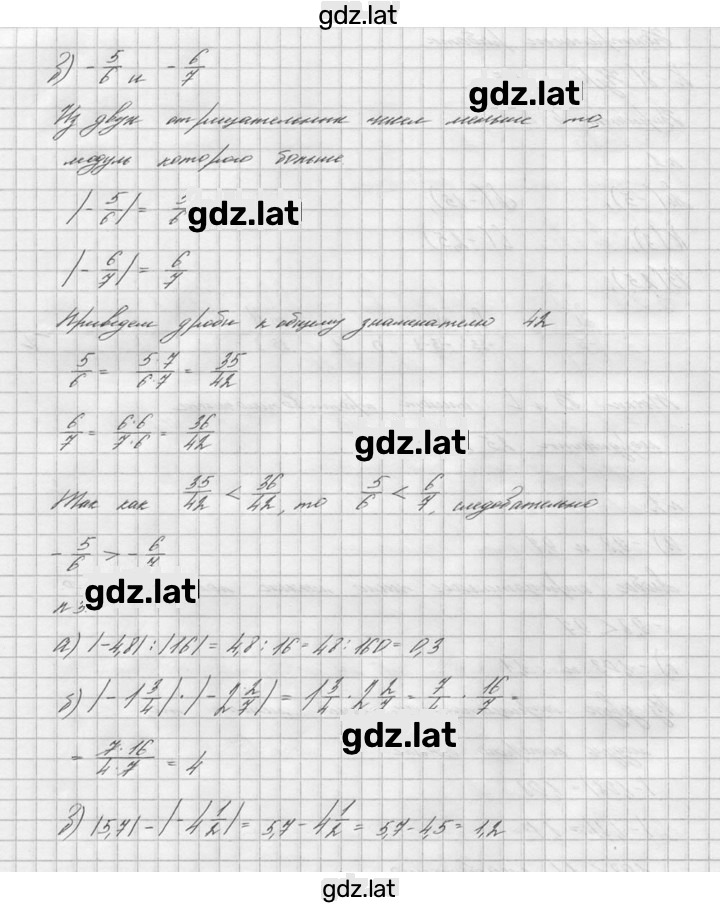 gdz.lat
в) -5/6 и -6/7
gdz.lat
Из двух отрицательных чисел меньше то,
модуль которого больше
|-5/6| = 5/6
gdz.lat
|-6/7| = 6/7
Приведем дроби к общему знаменателю 42
5/6 = 5·7/6·7 = 35/42
6/7 = 6·6/7·6 = 36/42
gdz.lat
Так как 35/42 < 36/42, то 5/6 < 6/7, следовательно
-5/6 > -6/7
gdz.lat
№3
а) |-4,8| : |16| = 4,8 : 16 = 48 : 160 = 0,3
б) |-1 3/4| · |-2 2/7| = 1 3/4 · 2 2/7 = 7/4 · 16/7 =
gdz.lat
= 7·16/4·7 = 4
в) |5,7| - |-4 1/2| = 5,7 - 4 1/2 = 5,7 - 4,5 = 1,2
gdz.lat